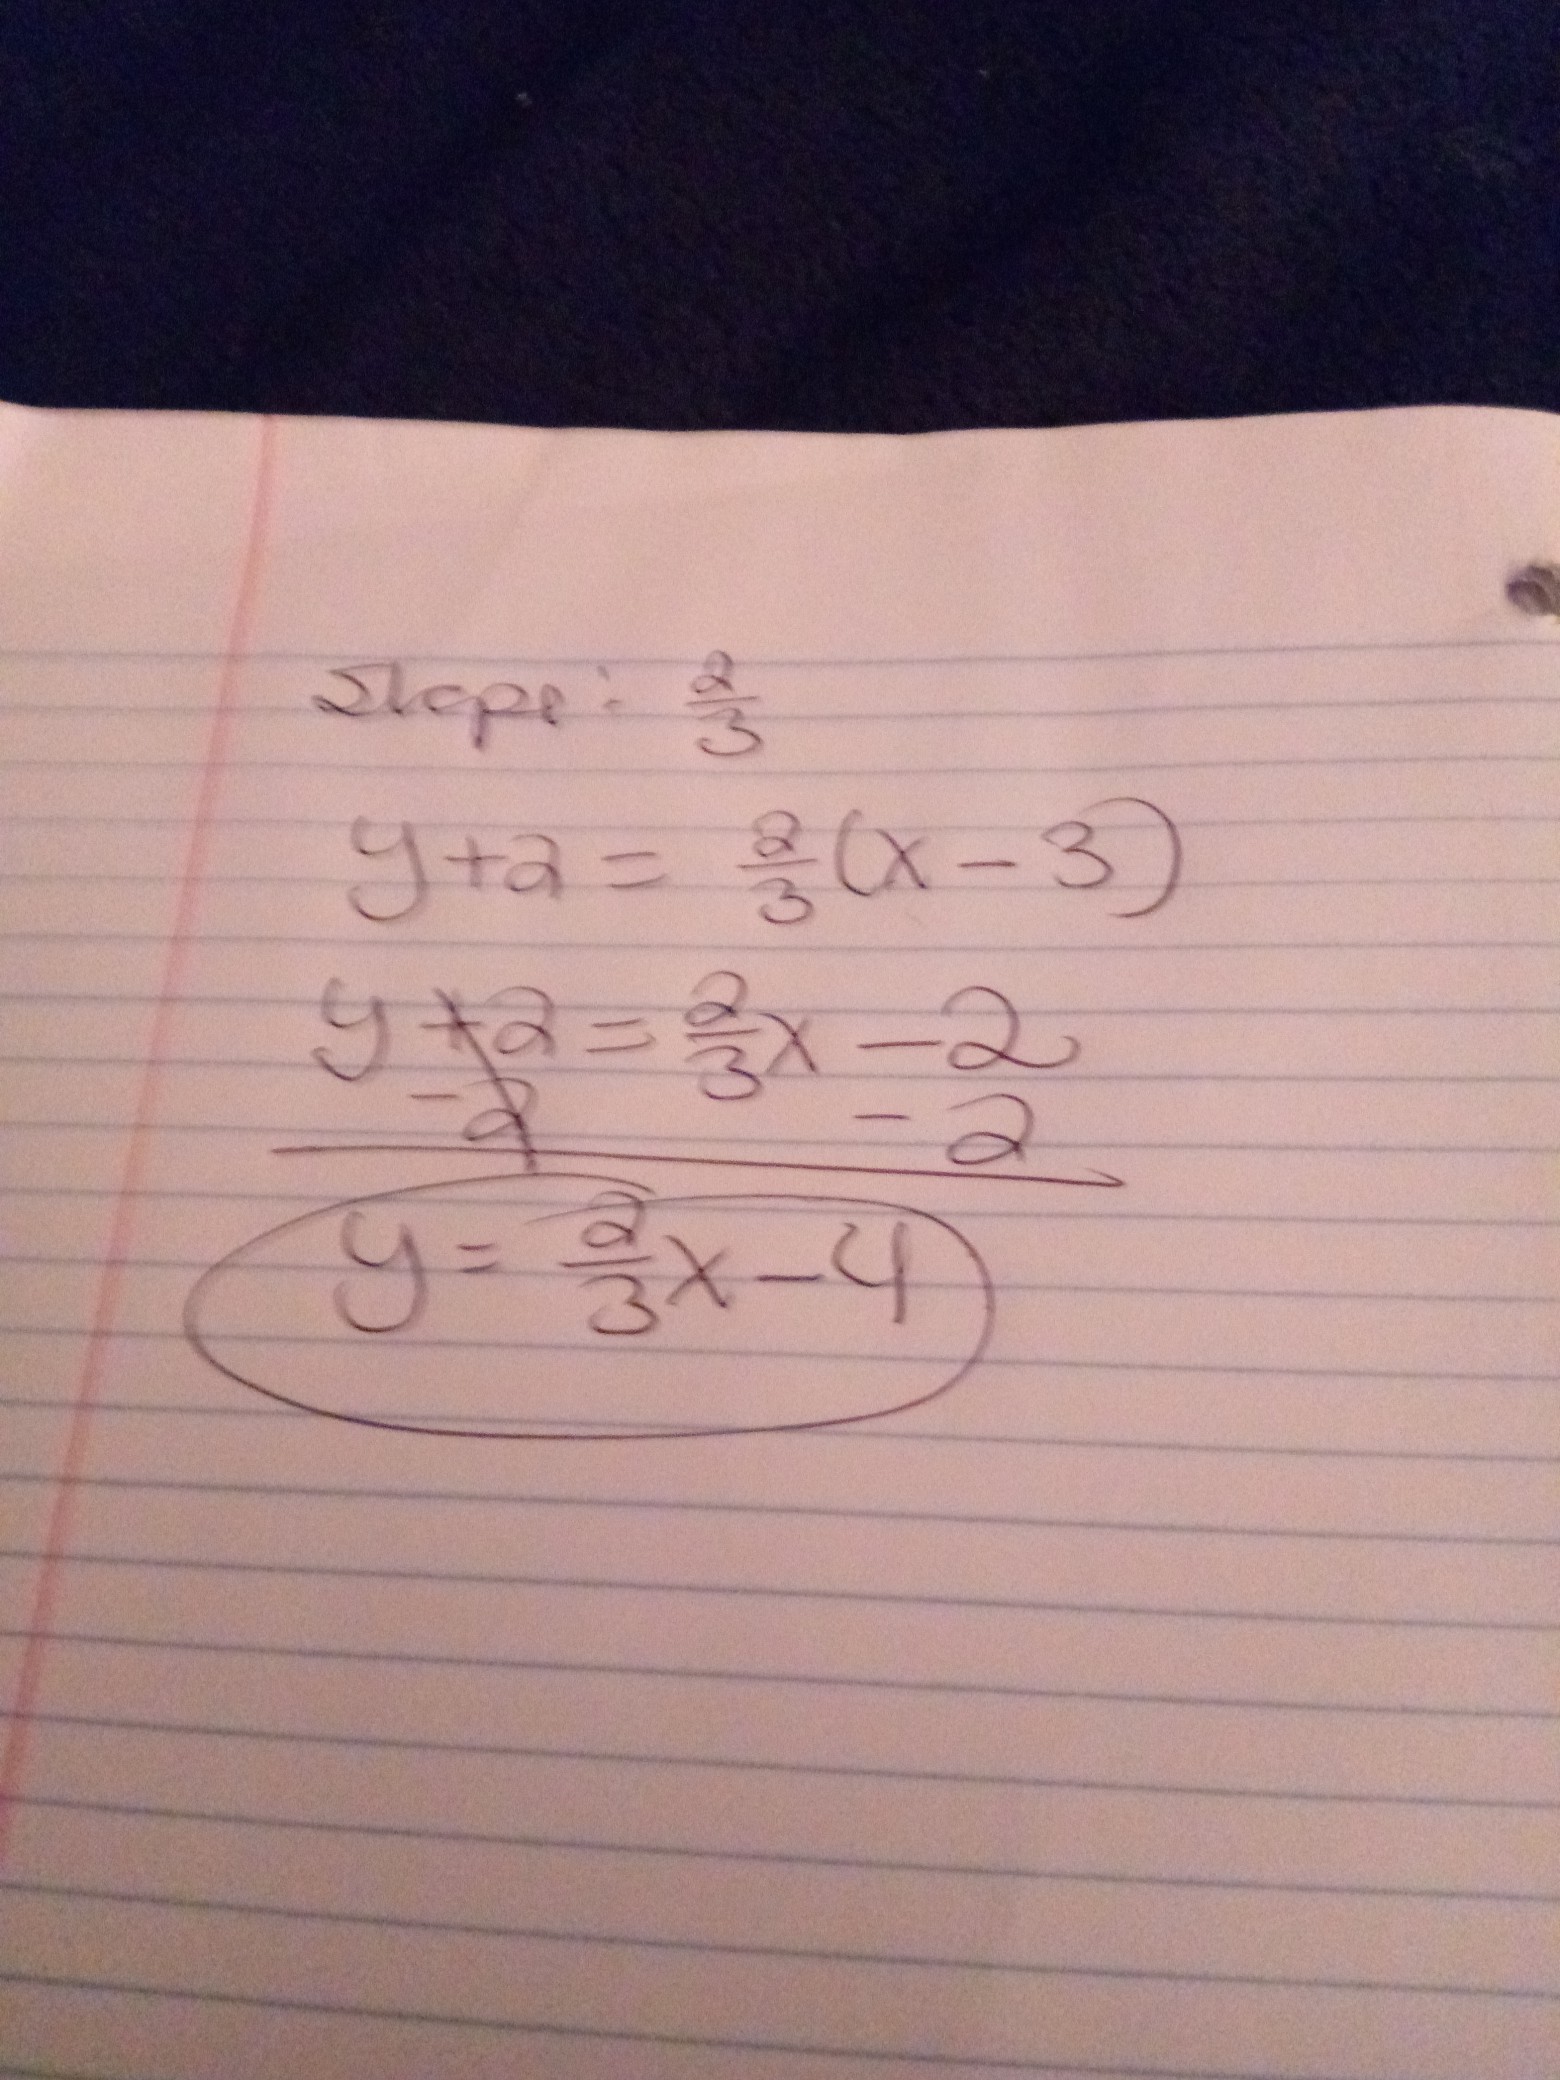 Slope: 2/3
y+2 = 2/3(x-3)
y+2 = 2/3x - 2
-2 -2
y = 2/3x - 4